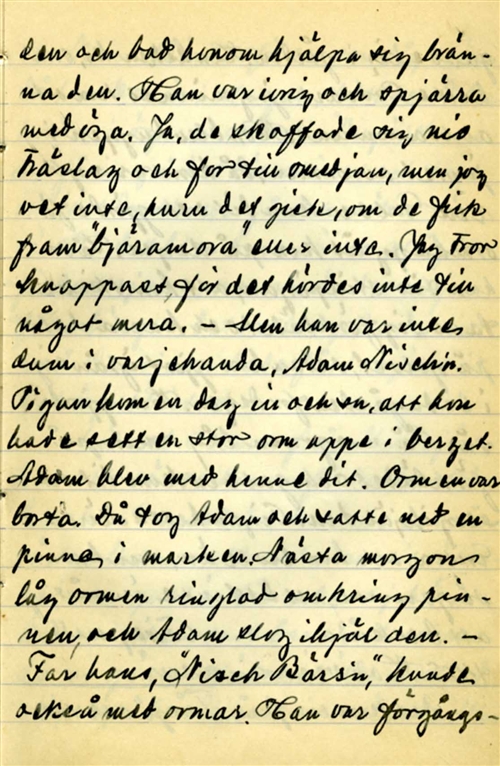 den och bad honom hjälpa sig brän-
na den. Han var ivrig och spjärra
med öga. Ja, de skaffade sig nio
träslag och for till smedjan, men jag
vet inte, huru det gick, om de fick
fram "bjäramora" eller inte. Jag tror
knappast, för det hördes inte till
något mera. – Men han var inte
dum i varjehanda, Adam Nisch'n.
Pigan kom en dag in och sa, att hon
hade sett en stor orm uppe i berget.
Adam blev med henne dit. Ormen var
borta. Då tog Adam och satte ned en
pinne i marken. Nästa morgon
låg ormen ringlad omkring pin-
nen, och Adam slog ihjäl den. –
Far hans, "Nisch Bärs'n," kunde
också med ormar. Han var förgångs-